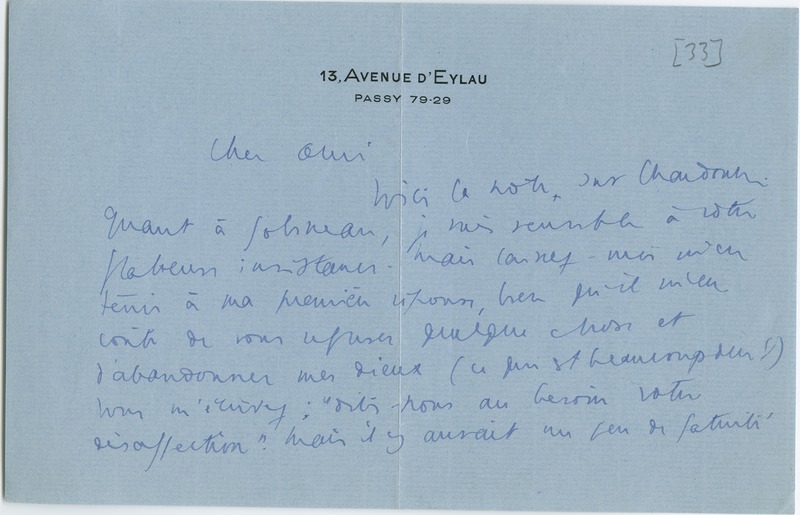 [33]
13, AVENUE D'EYLAU
PASSY 79-29
Cher ami
Voici la note, sur Chardonne.
Quant à Gobineau, je suis sensible à votre
flatteuse insistance. Mais laissez-moi m'en
tenir à ma première réponse, bien qu'il m'en
coûte de vous refuser quelque chose et
d'abandonner mes dieux (ce qui est beaucoup dire !)
Vous m'écrivez : "dites-nous au besoin votre
désaffection". Mais il y aurait un peu de fatuité